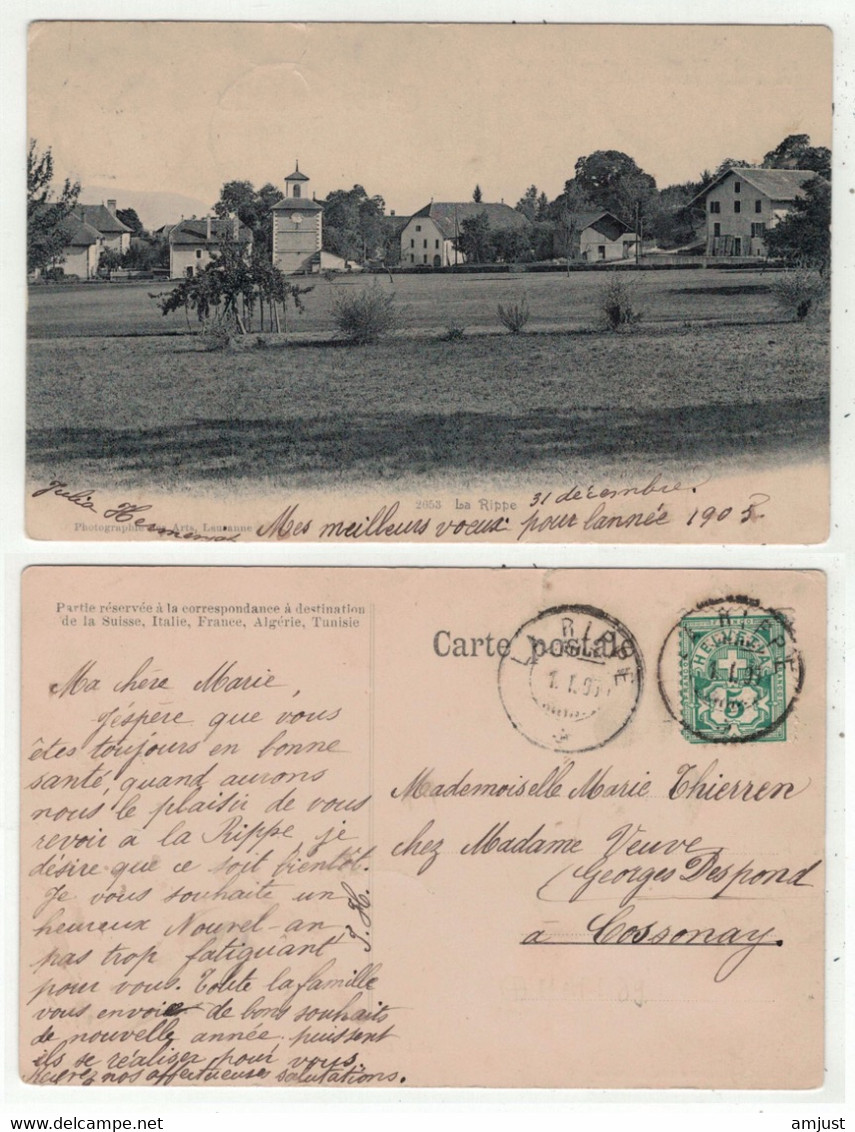 2653 La Rippe
31 décembre.
Julia
Photographie des Arts, Lausanne
Mes meilleurs voeux pour l'année 1905
Partie réservée à la correspondance à destination
de la Suisse, Italie, France, Algérie, Tunisie
Carte postale
LA RIPPE
LA RIPPE
HELVETIA
5
Ma chère Marie,
J'espère que vous
êtes toujours en bonne
santé, quand aurons
nous le plaisir de vous
revoir à la Rippe, je
désire que ce soit bientôt.
Je vous souhaite un
heureux Nouvel-an
pas trop fatiguant
pour vous. Toute la famille
vous envoie de bons souhaits
de nouvelle année puissent
ils se réaliser pour vous.
Recevez nos affectueuses salutations.
J. H.
Mademoiselle Marie Thierren
chez Madame Veuve
Georges Despond
à Cossonay.
www.delcampe.net
amjust